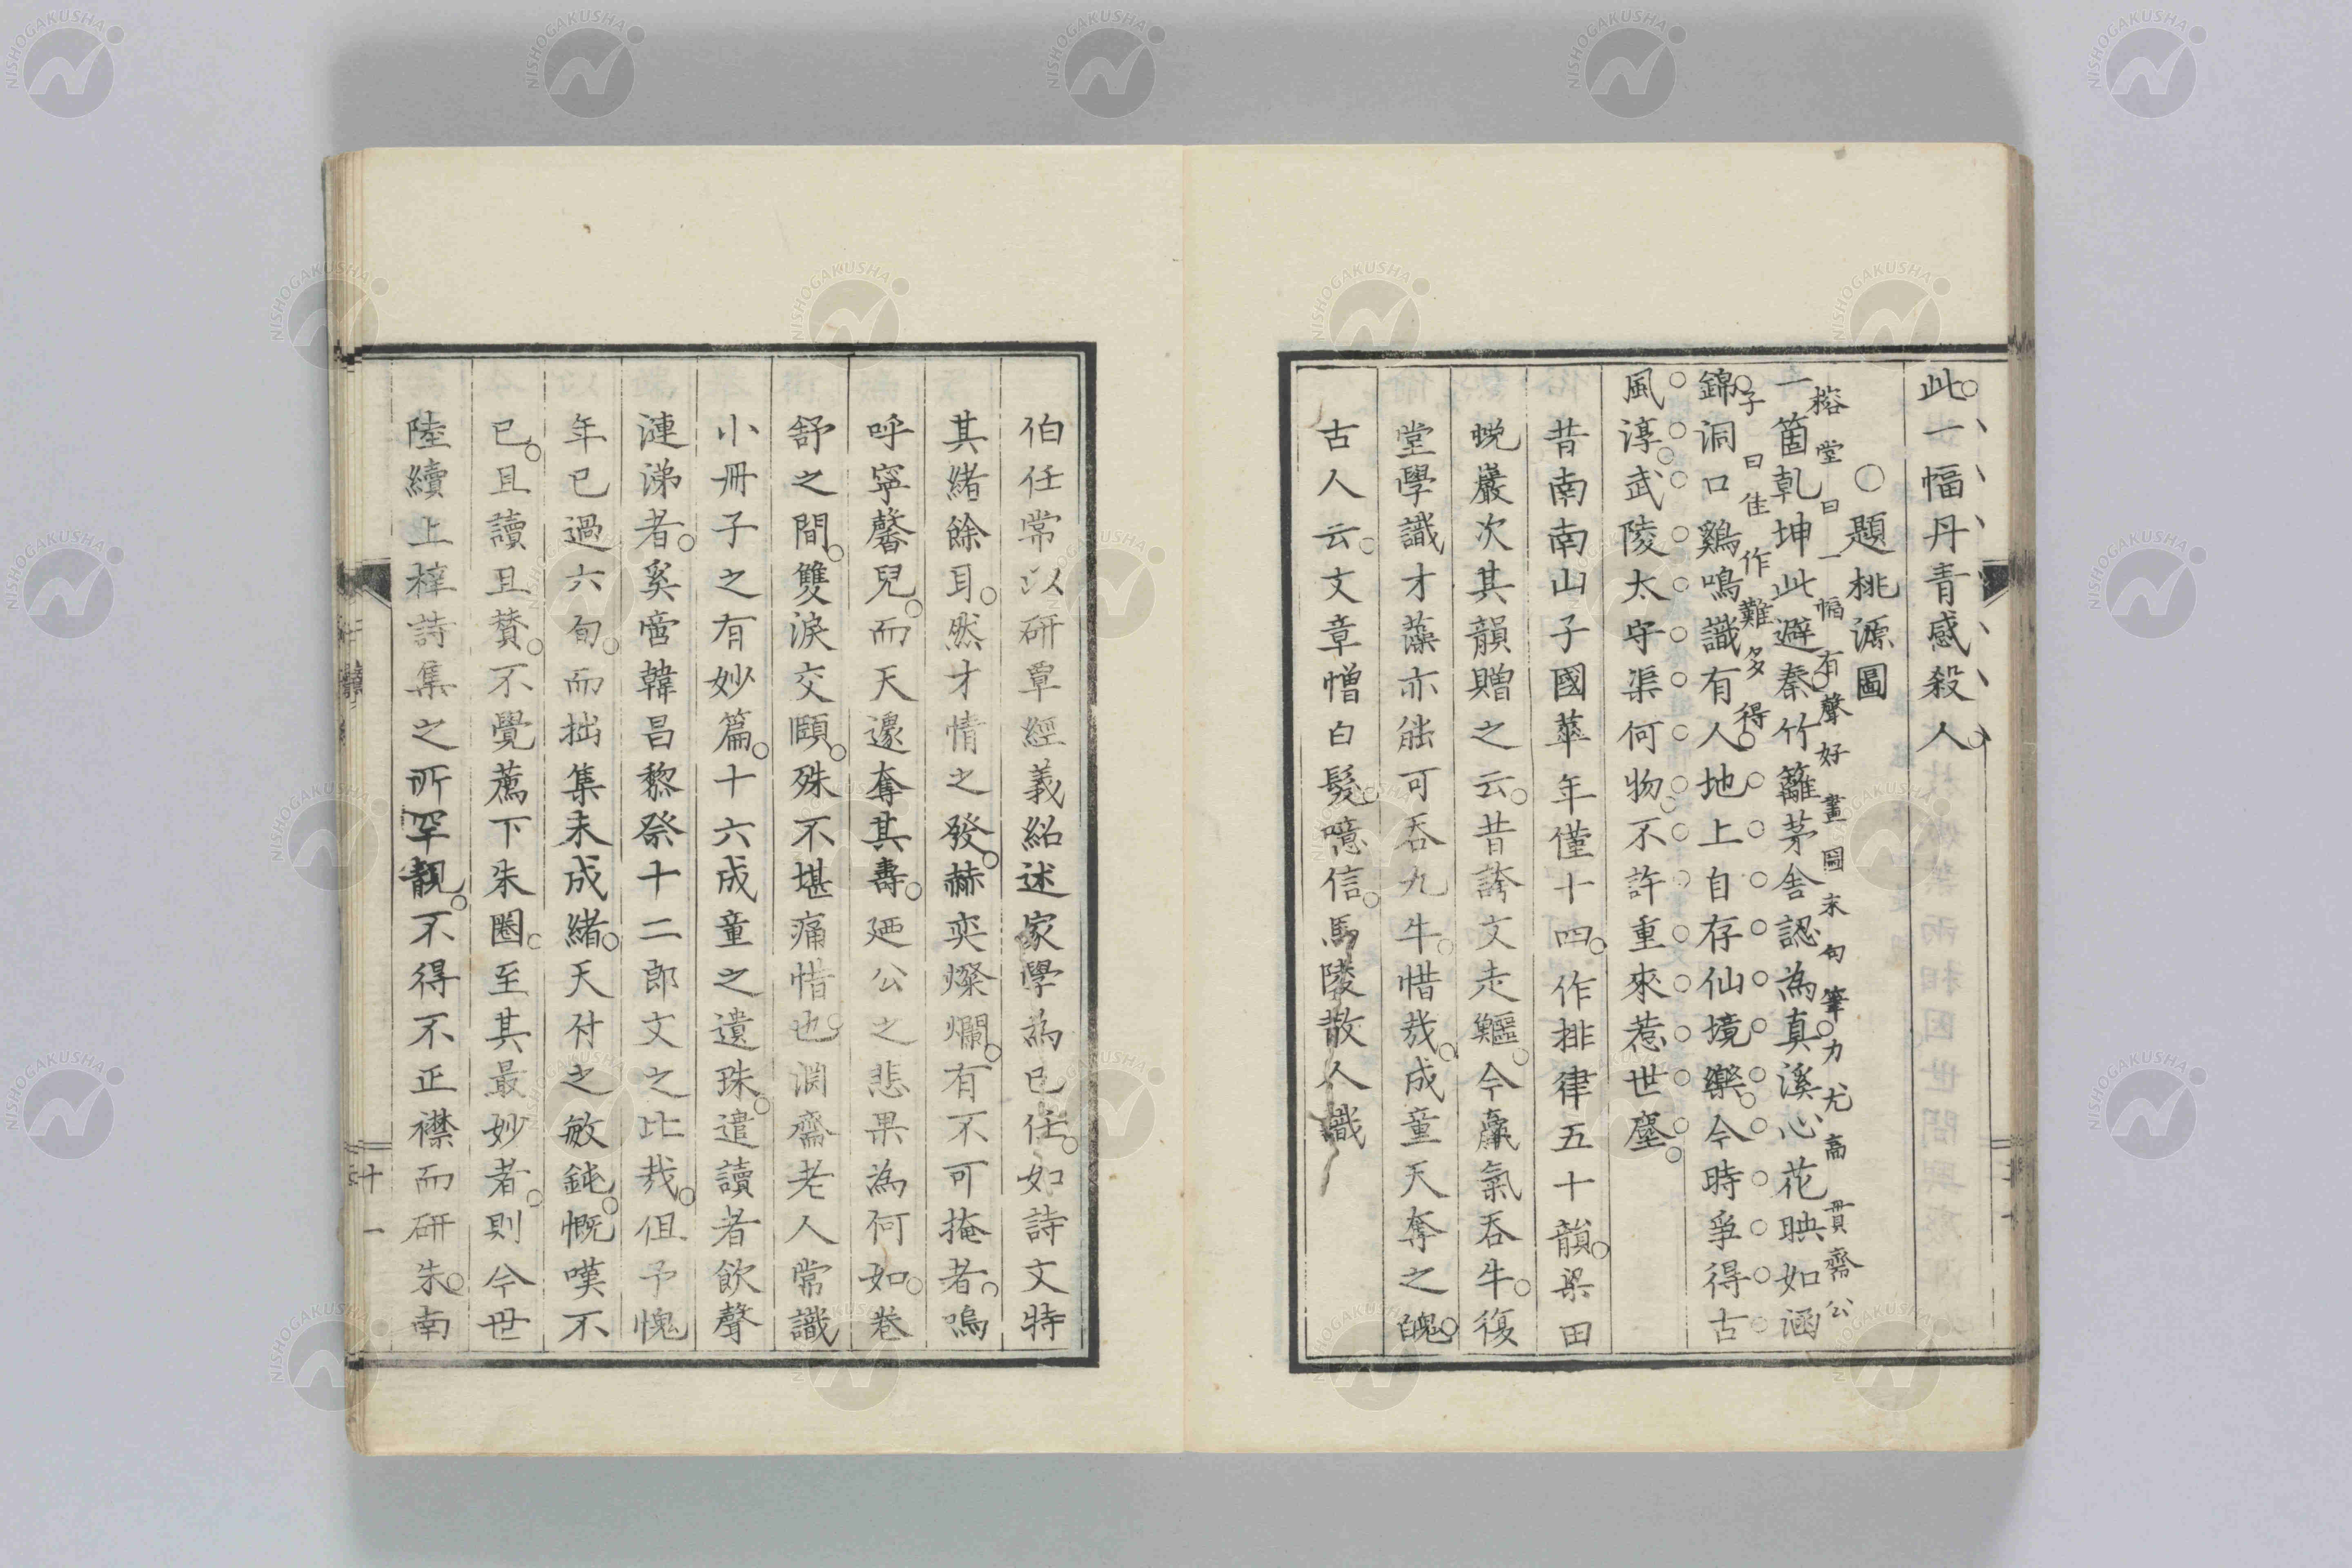 此一幅丹青感殺人
○題桃源圖
榕堂曰一幅有聲好畫圖末句筆力尤高 貫齋公
一箇乾坤此避秦竹籬茅舍認為真溪心花映如涵
子曰佳作難多得
錦洞口鷄鳴識有人地上自存仙境樂今時爭得古
風淳武陵太守渠何物不許重來惹世塵
昔南南山子國華年僅十四作排律五十韻梁田
蛻巖次其韻贈之云昔誇文走鱷今羸氣吞牛復
堂學識才藻亦能可吞九牛惜哉成童天奪之魄
古人云文章憎白髮噫信馬陵散人識
伯任常以研覃經義紹述家學為已任如詩文特
其緒餘耳然才情之發赫奕燦爛有不可掩者嗚
呼寧馨兒而天遽奪其壽廼公之悲果為何如卷
舒之間雙淚交頤殊不堪痛惜也淵齋老人常識
小冊子之有妙篇十六成童之遺珠遣讀者飲聲
漣涕者奚啻韓昌黎祭十二郎文之比哉但予愧
年已過六旬而拙集未成緒天付之敏鈍慨嘆不
已且讀且贊不覺薦下朱圈至其最妙者則今世
陸續上梓詩集之所罕覯不得不正襟而研朱南
十一